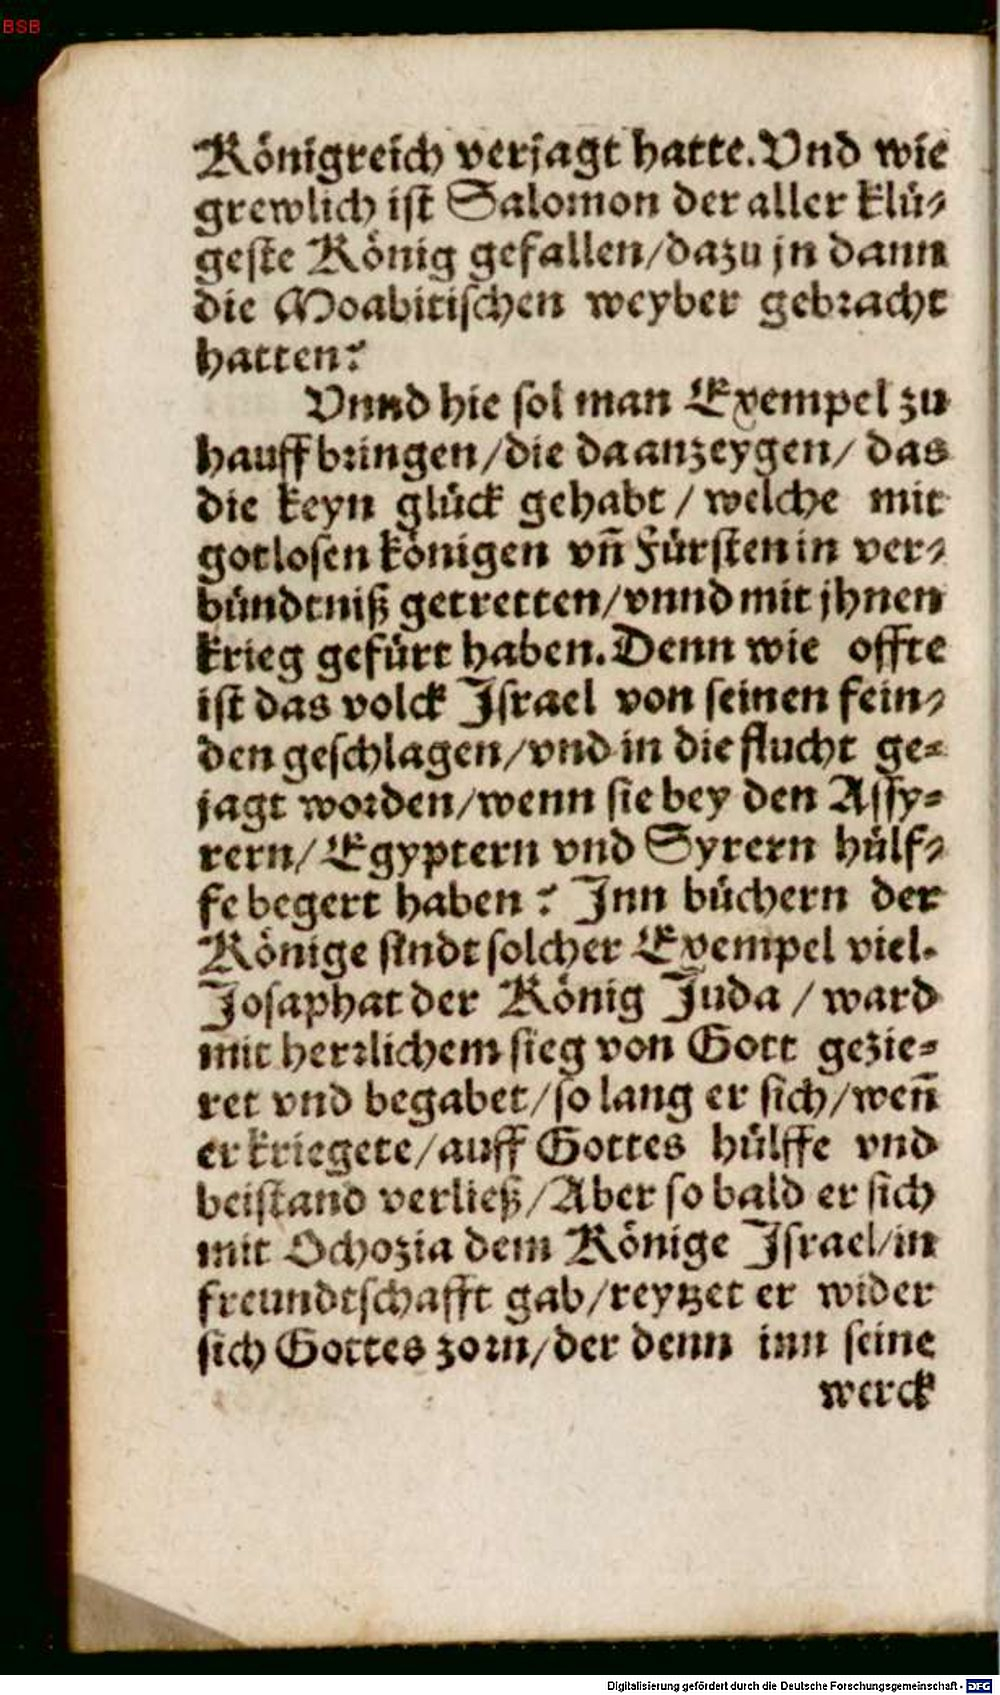 BSB
Königreich verjagt hatte. Vnd wie
grewlich ist Salomon der aller klü-
geste König gefallen/dazu jn dann
die Moabitischen weyber gebracht
hatten?
Vnnd hie sol man Exempel zu
hauff bringen/die da anzeygen/ das
die keyn glück gehabt / welche mit
gotlosen königen vñ Fürsten in ver-
bündtniß getretten/vnnd mit jhnen
krieg gefürt haben. Denn wie offte
ist das volck Israel von seinen fein-
den geschlagen/vnd in die flucht ge-
jagt worden/wenn sie bey den Assy-
rern/ Egyptern vnd Syrern hülf-
fe begert haben? Inn büchern der
Könige sindt solcher Exempel viel.
Josaphat der König Juda / ward
mit herrlichem sieg von Gott gezie-
ret vnd begabet/so lang er sich/weñ
er kriegete/auff Gottes hülffe vnd
beistand verließ/Aber so bald er sich
mit Ochozia dem Könige Israel/in
freundtschafft gab/reytzet er wider
sich Gottes zorn/der denn inn seine
werck
Digitalisierung gefördert durch die Deutsche Forschungsgemeinschaft - DFG